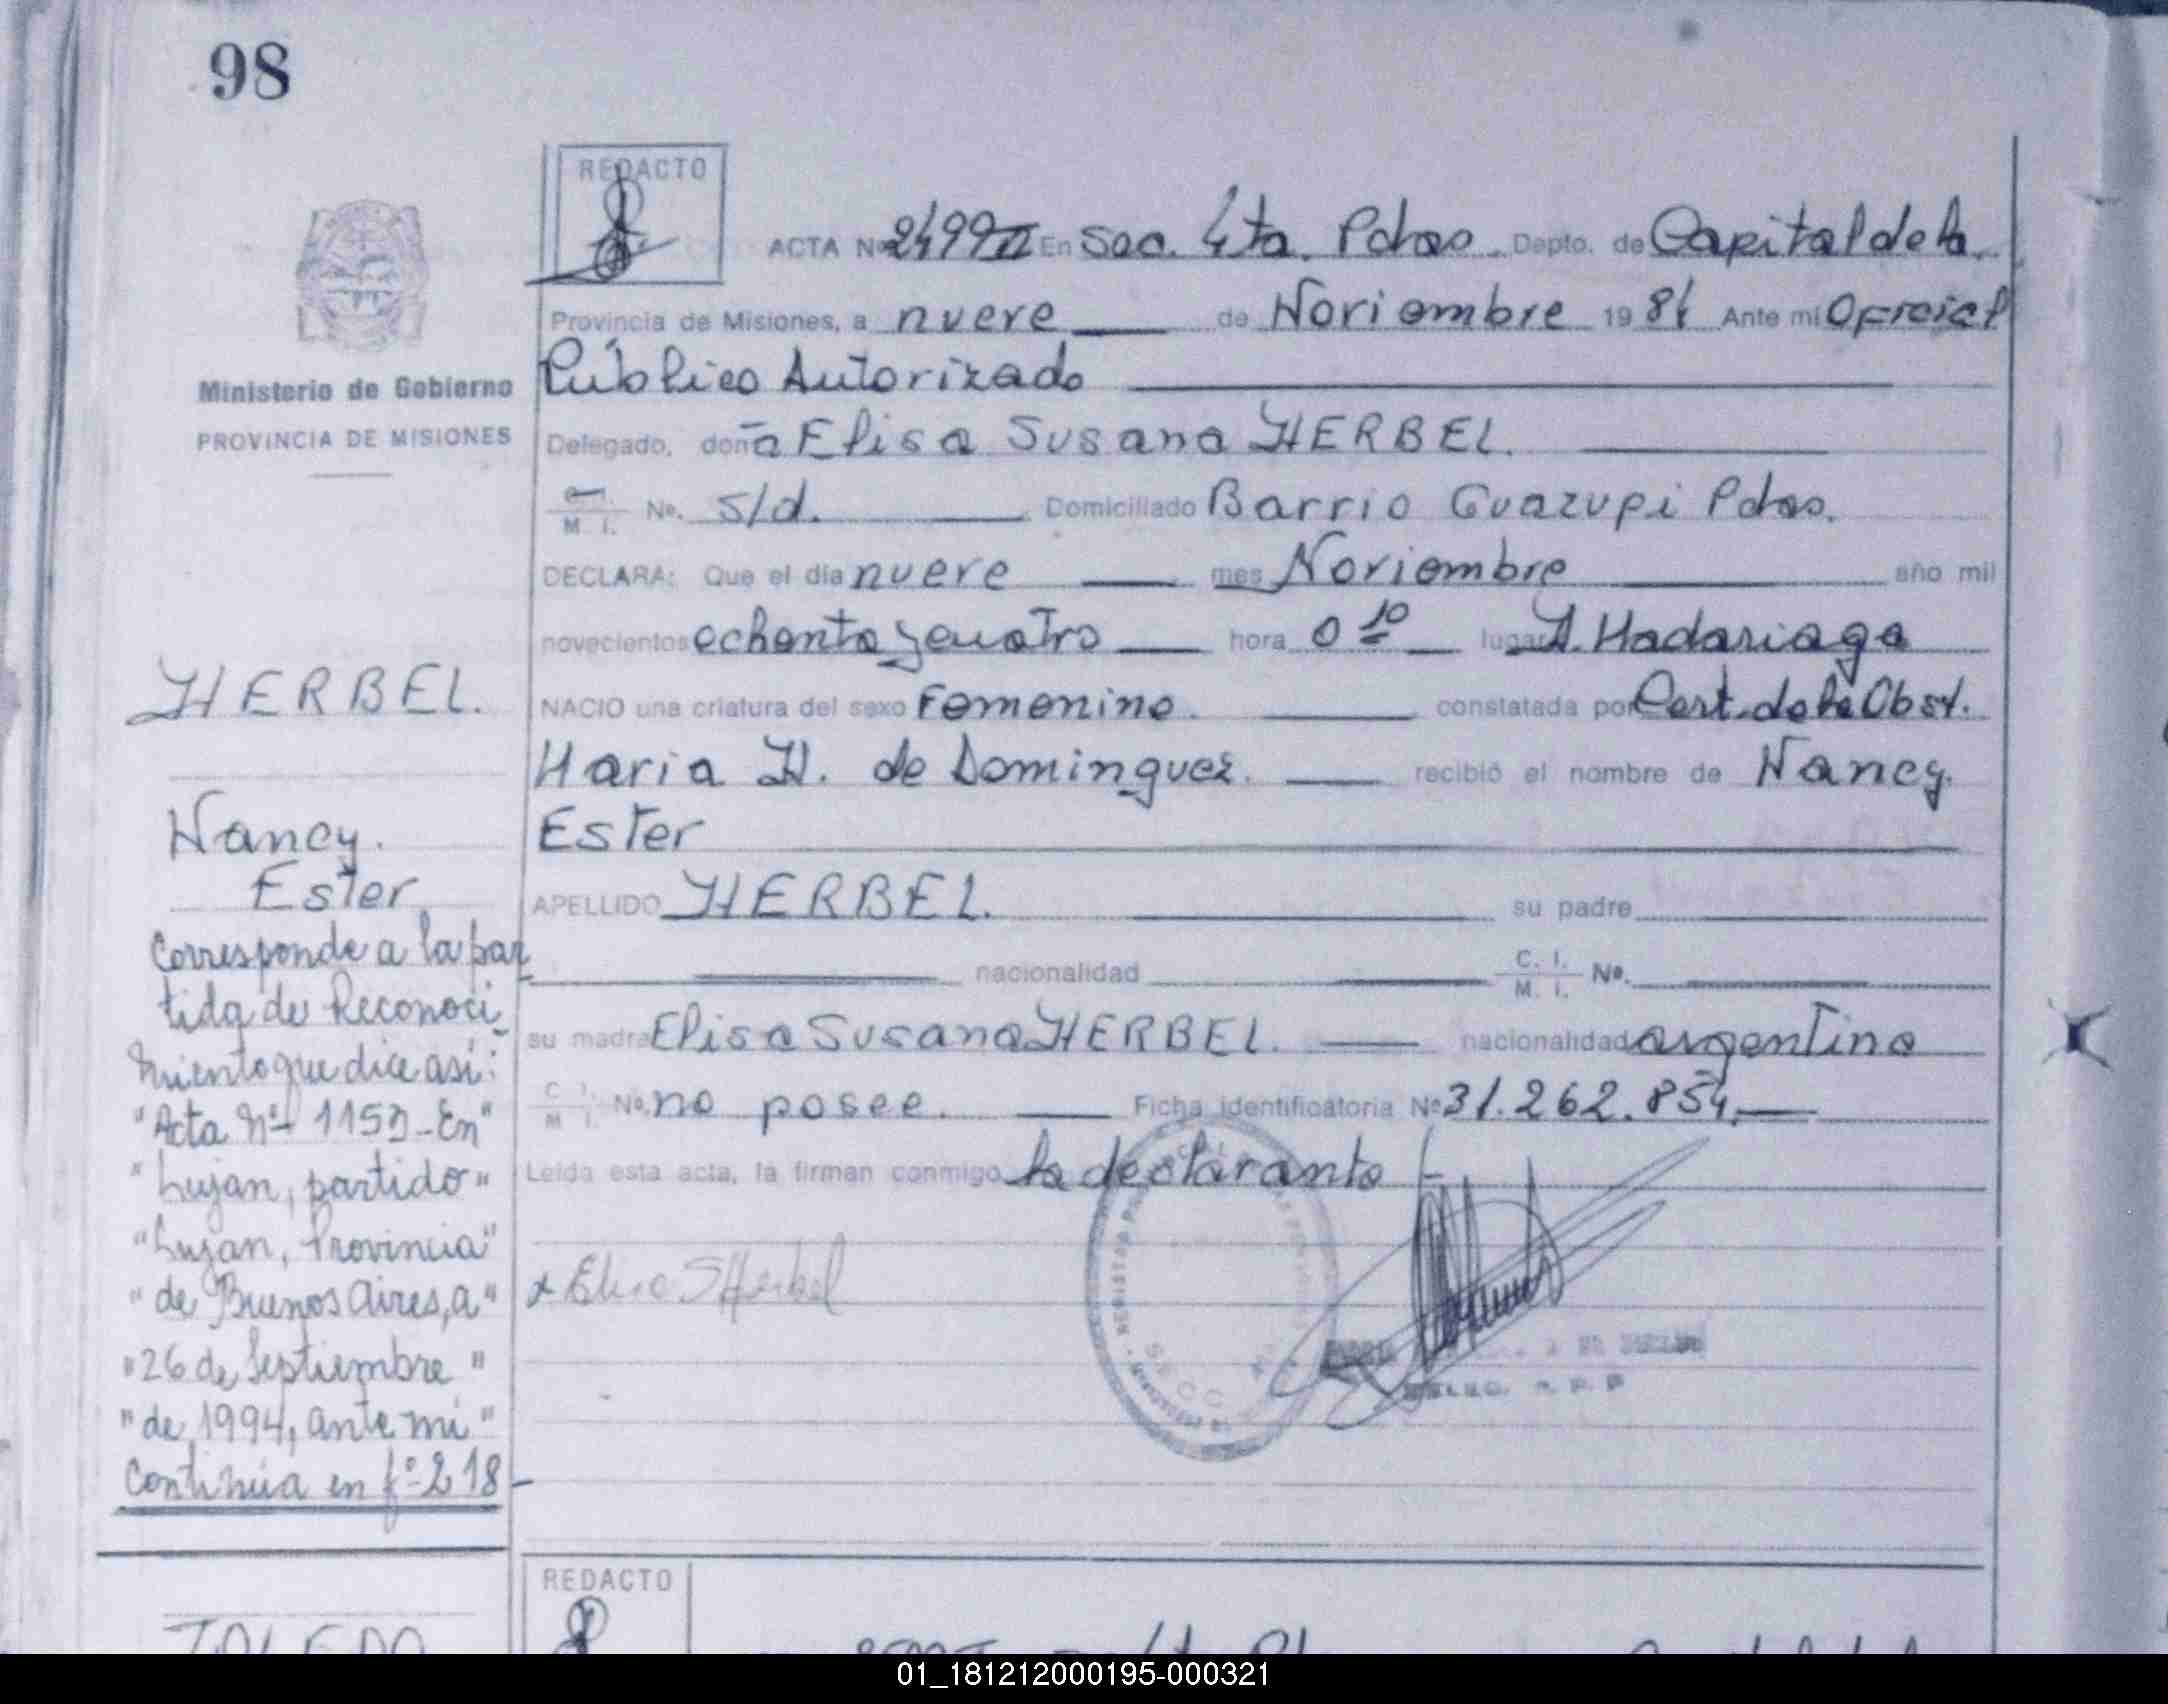 98
REDACTO
ACTA No 2499 II En Sec. 4ta. Pdas. Depto. de Capital de la
Provincia de Misiones, a nueve de Noviembre 1984 Ante mi Oficial
Ministerio de Gobierno
PROVINCIA DE MISIONES
Público Autorizado
Delegado, doña Elisa Susana HERBEL.
M. I. No. s/d. Domiciliado Barrio Guazupi Pdas.
DECLARA: Que el día nueve mes Noviembre año mil
novecientos ochenta y cuatro hora 0 10 lugar H. Madariaga
NACIO una criatura del sexo Femenino. constatada por Cert. de la Obst.
Maria H. de Dominguez. recibió el nombre de Nancy.
Ester
APELLIDO HERBEL. su padre
nacionalidad C. I. M. I. No.
su madre Elisa Susana HERBEL. nacionalidad argentina
C I. M I. No. no posee. Ficha identificatoria No 31.262.854.
Leída esta acta, la firman conmigo la declarante.-
x Elisa S Herbel
HERBEL.
Nancy.
Ester
Corresponde a la par
tida de Reconoci
miento que dice asi:
"Acta Nº 1159-En"
"Lujan, partido"
"Lujan, Provincia"
"de Buenos Aires, a"
"26 de Septiembre"
"de 1994, ante mi"
Continúa en fº-218-
REDACTO
TOLEDO
01_181212000195-000321